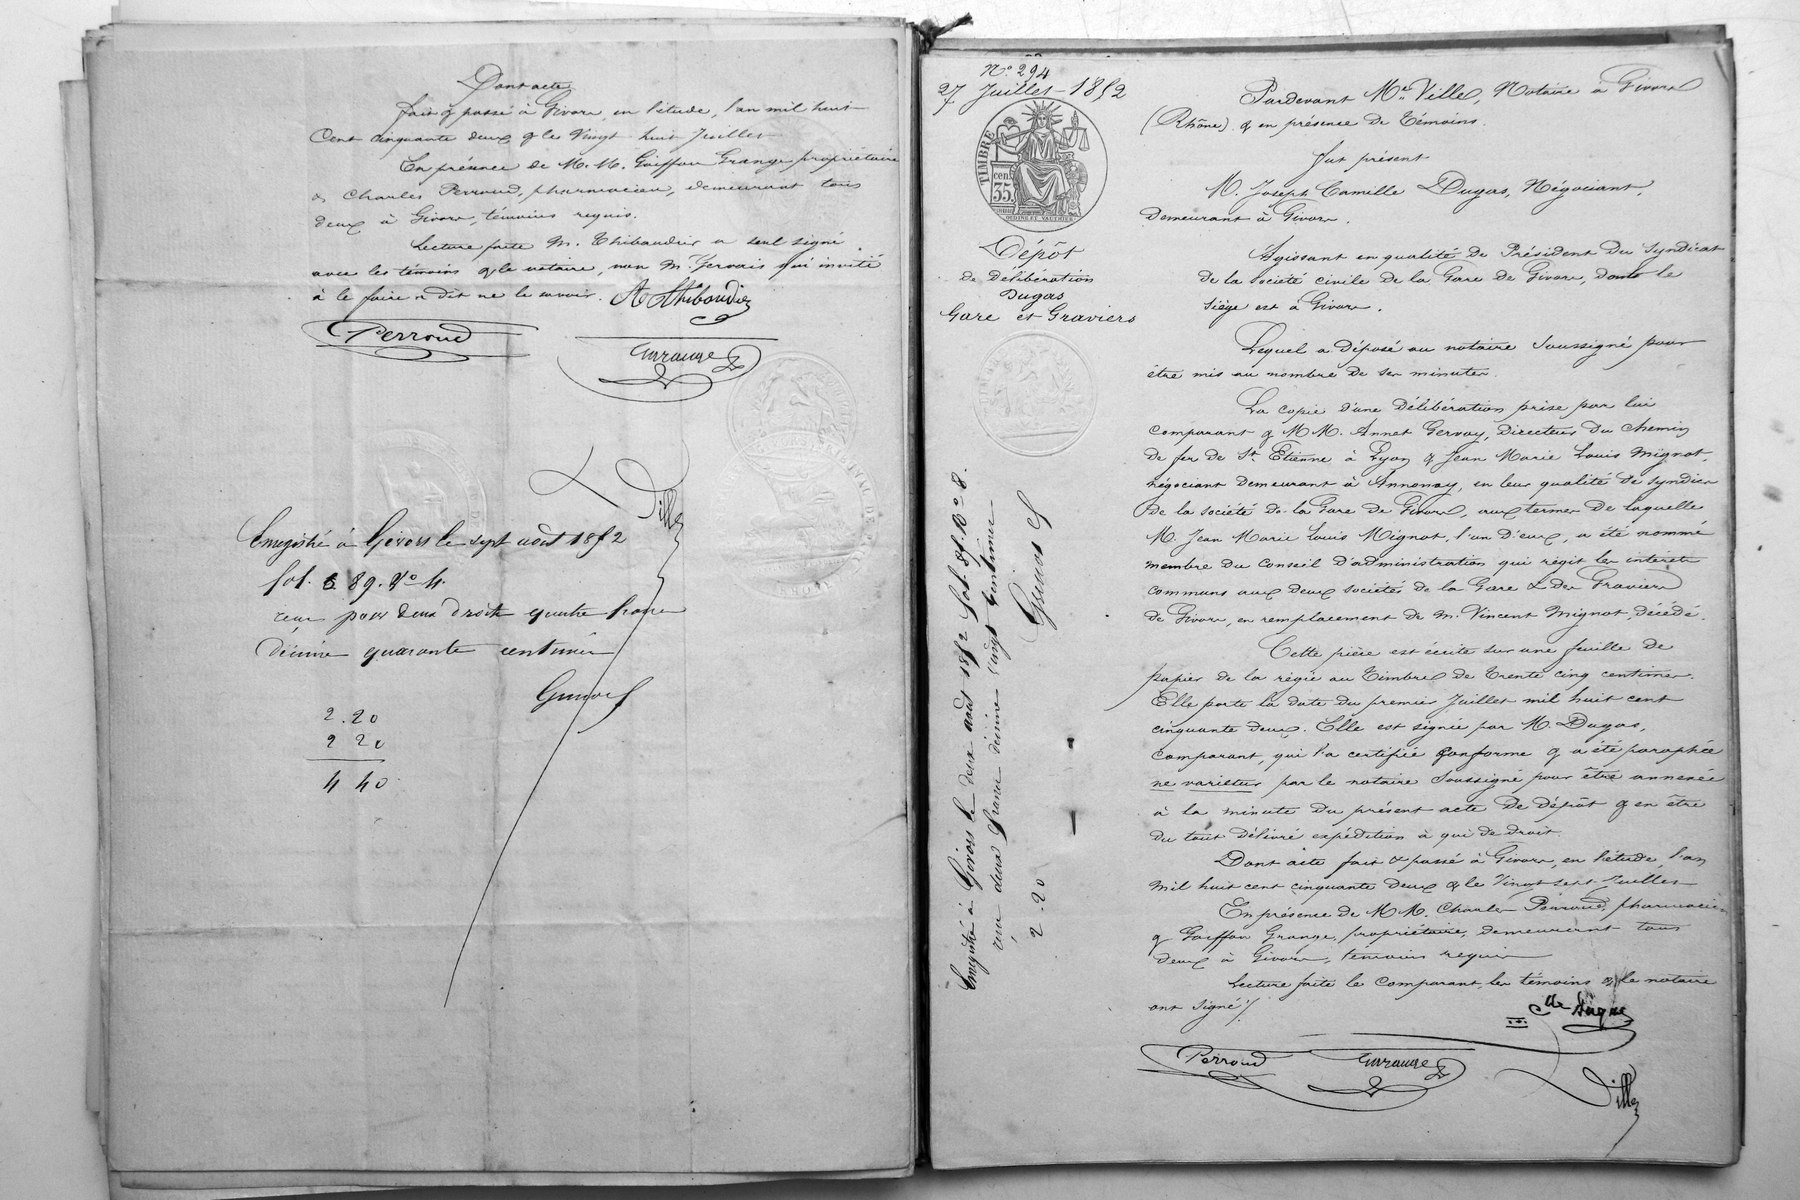 Dont acte
fait & passé à Givors, en l'étude, l'an mil huit
Cent cinquante deux & le Vingt huit Juillet
En présence de M. M. Goiffon Grange propriétaire
& Charles Perroud, pharmacien, demeurant tous
deux à Givors, témoins requis.
Lecture faite M. Thibaudier a seul signé
avec les témoins & le notaire, non M. Gervais qui invité
à le faire a dit ne le savoir. A Thibaudier
Perroud
Grrange
Ville
Enregistré à Givors le sept août 1852
fol. 89. Vo 4.
reçu pour deux droits quatre francs
décime quarante centimes
2.20
2 20
4 40
No. 294
27 Juillet 1852
TIMBRE
cent.
35
Dépôt
de Délibération
Dugas
Gare et Graviers
Enregistré à Givors le deux août 1852 fol. 87. Ro 8.
reçu deux francs décime vingt centimes
2.20
Pardevant Me. Ville, Notaire à Givors
(Rhône), & en présence de Témoins.
Fut présent
M. Joseph Camille Dugas, Négociant,
Demeurant à Givors.
Agissant en qualité de Président du Syndicat
de la Société civile de la Gare de Givors, dont le
siège est à Givors.
Lequel a déposé au notaire soussigné pour
être mis au nombre de ses minutes.
La copie d'une Délibération prise par lui
comparant & M M. Annet Gervoy, Directeur du chemin
de fer de St. Etienne à Lyon & Jean Marie Louis Mignot,
négociant demeurant à Annonay, en leur qualité de syndics
de la société de la Gare de Givors, aux termes de laquelle
M. Jean Marie Louis Mignot, l'un d'eux, a été nommé
membre du Conseil d'administration qui régit les intérêts
communs aux deux sociétés de la Gare & des Graviers
de Givors, en remplacement de M. Vincent Mignot, décédé.
Cette pièce est écrite sur une feuille de
papier de la régie au Timbre de trente cinq centimes.
Elle porte la date du premier Juillet mil huit cent
cinquante deux. Elle est signée par M. Dugas,
comparant, qui l'a certifiée conforme & a été paraphée
ne varietur par le notaire soussigné pour être annexée
à la minute du présent acte de dépôt & en être
du tout délivré expédition à qui de droit.
Dont acte fait & passé à Givors, en l'étude, l'an
mil huit cent cinquante deux & le Vingt sept Juillet
En présence de M M. Charles Perroud, pharmacien
& Goiffon Grange, propriétaire, demeurant tous
deux à Givors, témoins requis
Lecture faite le Comparant, les témoins & le notaire
ont signé /.
Clle Dugas
Perroud
Grrange
Ville